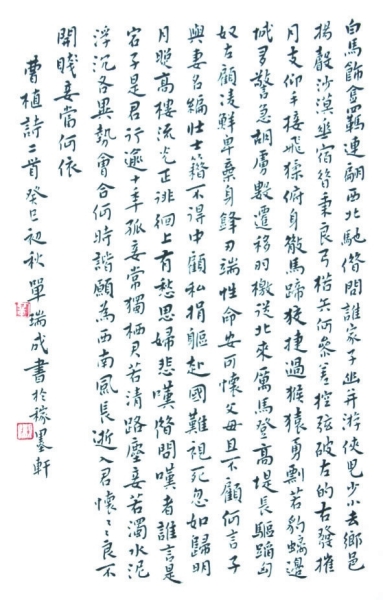 白馬飾金羈連翩西北馳借問誰家子幽并游俠兒少小去鄉邑
揚聲沙漠垂宿昔秉良弓楛矢何參差控弦破左的右發摧
月支仰手接飛猱俯身散馬蹄狡捷過猴猿勇剽若豹螭邊
城多警急胡虜數遷移羽檄從北來厲馬登高堤長驅蹈匈
奴左顧凌鮮卑棄身鋒刃端性命安可懷父母且不顧何言子
與妻名編壯士籍不得中顧私捐軀赴國難視死忽如歸明
月照高樓流光正徘徊上有愁思婦悲嘆借問嘆者誰言是
宕子妻君行逾十年孤妾常獨栖君若清路塵妾若濁水泥
浮沉各異勢會合何時諧願為西南風長逝入君懷々良不
開賤妾當何依
曹植詩二首癸巳初秋單瑞成書於稼墨軒